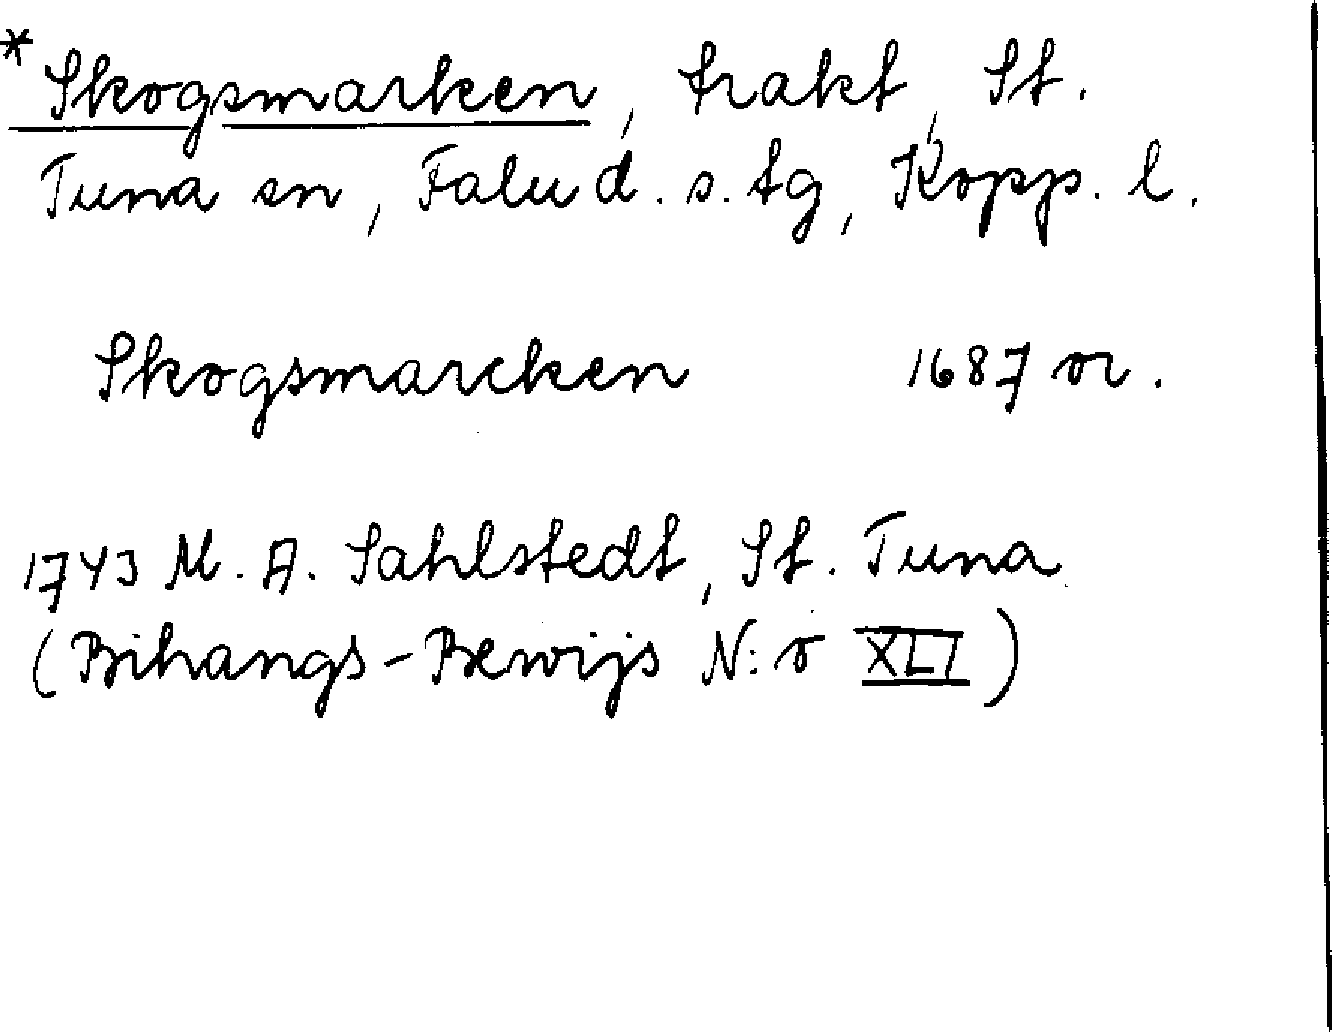 * Skogsmarken, trakt, St.
Tuna sn, Falu d. s. tg, Kopp. l.
Skogsmarcken 1687 or.
1743 M. A. Sahlstedt, St. Tuna
(Bihangs-Bewijs N:o XLI)